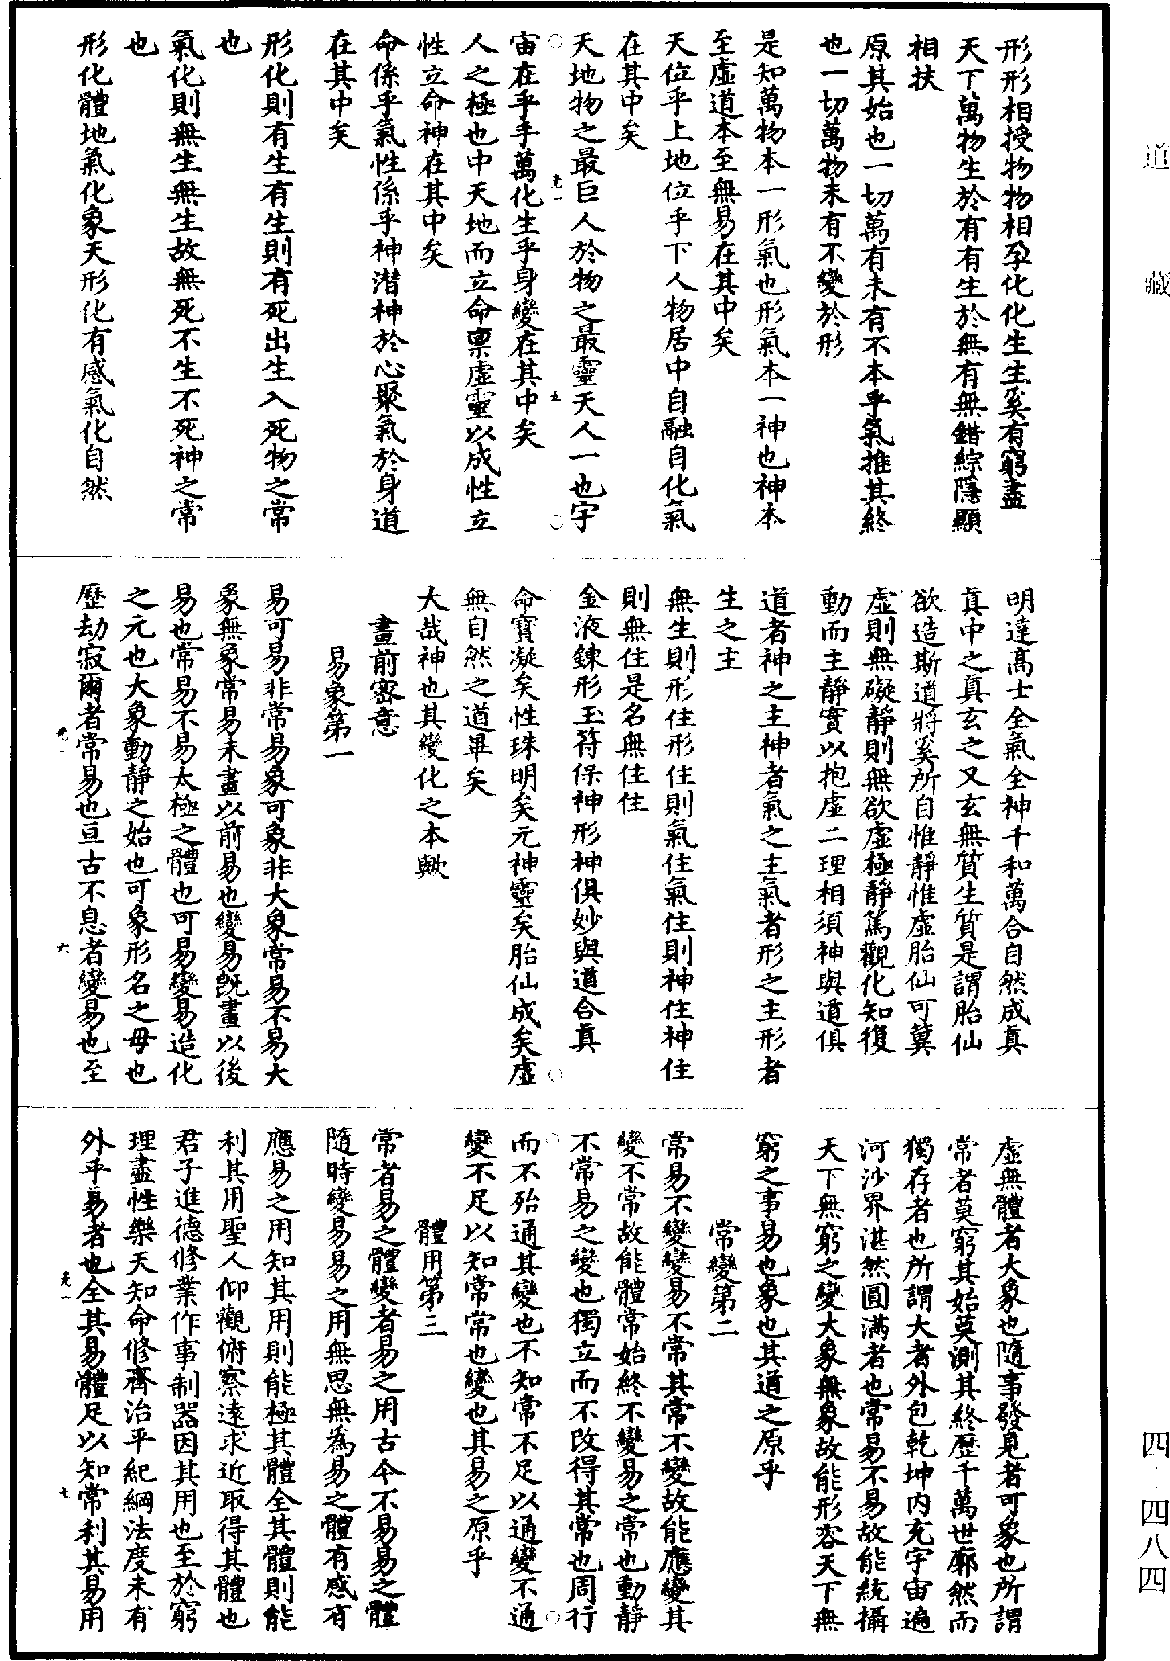 道藏
四·四八四
形形相授物物相孕化化生生奚有窮盡
天下萬物生於有有生於無有無錯綜隱顯
相扶
原其始也一切萬有未有不本乎氣推其終
也一切萬物未有不變於形
是知萬物本一形氣也形氣本一神也神本
至虛道本至無易在其中矣
天位乎上地位乎下人物居中自融自化氣
在其中矣
天地物之最巨人於物之最靈天人一也宇
宙在乎手萬化生乎身變在其中矣
人之極也中天地而立命禀虛靈以成性立
性立命神在其中矣
命係乎氣性係乎神潛神於心聚氣於身道
在其中矣
形化則有生有生則有死出生入死物之常
也
氣化則無生無生故無死不生不死神之常
也
形化體地氣化象天形化有感氣化自然
明達高士全氣全神千和萬合自然成真
真中之真玄之又玄無質生質是謂胎仙
欲造斯道將奚所自惟靜惟虛胎仙可冀
虛則無礙靜則無欲虛極靜篤觀化知復
動而主靜實以抱虛二理相須神與道俱
道者神之主神者氣之主氣者形之主形者
生之主
無生則形住形住則氣住氣住則神住神住
則無住是名無住住
金液鍊形玉符保神形神俱妙與道合真
命寶凝矣性珠明矣元神靈矣胎仙成矣虛
無自然之道畢矣
大哉神也其變化之本歟
畫前密意
易象第一
易可易非常易象可象非大象常易不易大
象無象常易未畫以前易也變易既畫以後
易也常易不易太極之體也可易變易造化
之元也大象動靜之始也可象形名之母也
歷劫寂爾者常易也亘古不息者變易也至
虛無體者大象也隨事發見者可象也所謂
常者莫窮其始莫測其終歷千萬世廓然而
獨存者也所謂大者外包乾坤內充宇宙遍
河沙界湛然圓滿者也常易不易故能統攝
天下無窮之變大象無象故能形容天下無
窮之事易也象也其道之原乎
常變第二
常易不變變易不常其常不變故能應變其
變不常故能體常始終不變易之常也動靜
不常易之變也獨立而不改得其常也周行
而不殆通其變也不知常不足以通變不通
變不足以知常常也變也其易之原乎
體用第三
常者易之體變者易之用古今不易易之體
隨時變易易之用無思無為易之體有感有
應易之用知其用則能極其體全其體則能
利其用聖人仰觀俯察遠求近取得其體也
君子進德修業作事制器因其用也至於窮
理盡性樂天知命修齊治平紀綱法度未有
外乎易者也全其易體足以知常利其易用